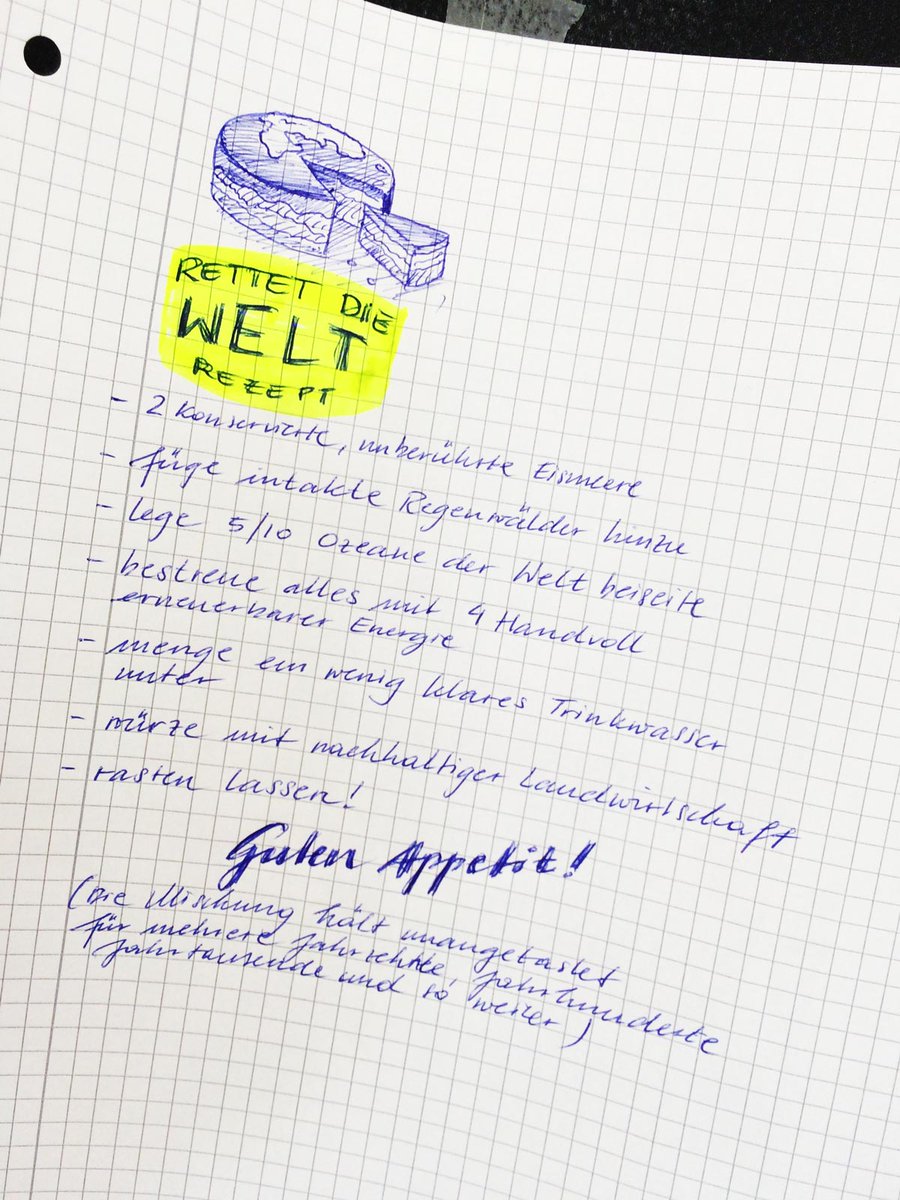 RETTET DIE
WELT
REZEPT
- 2 Konservierte, unberührte Eismeere
- füge intakte Regenwälder hinzu
- lege 5/10 Ozeane der Welt beiseite
- bestreue alles mit 4 Handvoll
erneuerbarer Energie
- menge ein wenig klares Trinkwasser
unter
- würze mit nachhaltiger Landwirtschaft
- rasten lassen!
Guten Appetit!
(Die Mischung hält unangetastet
für mehrere Jahrzehnte, Jahrhunderte
Jahrtausende und so weiter)